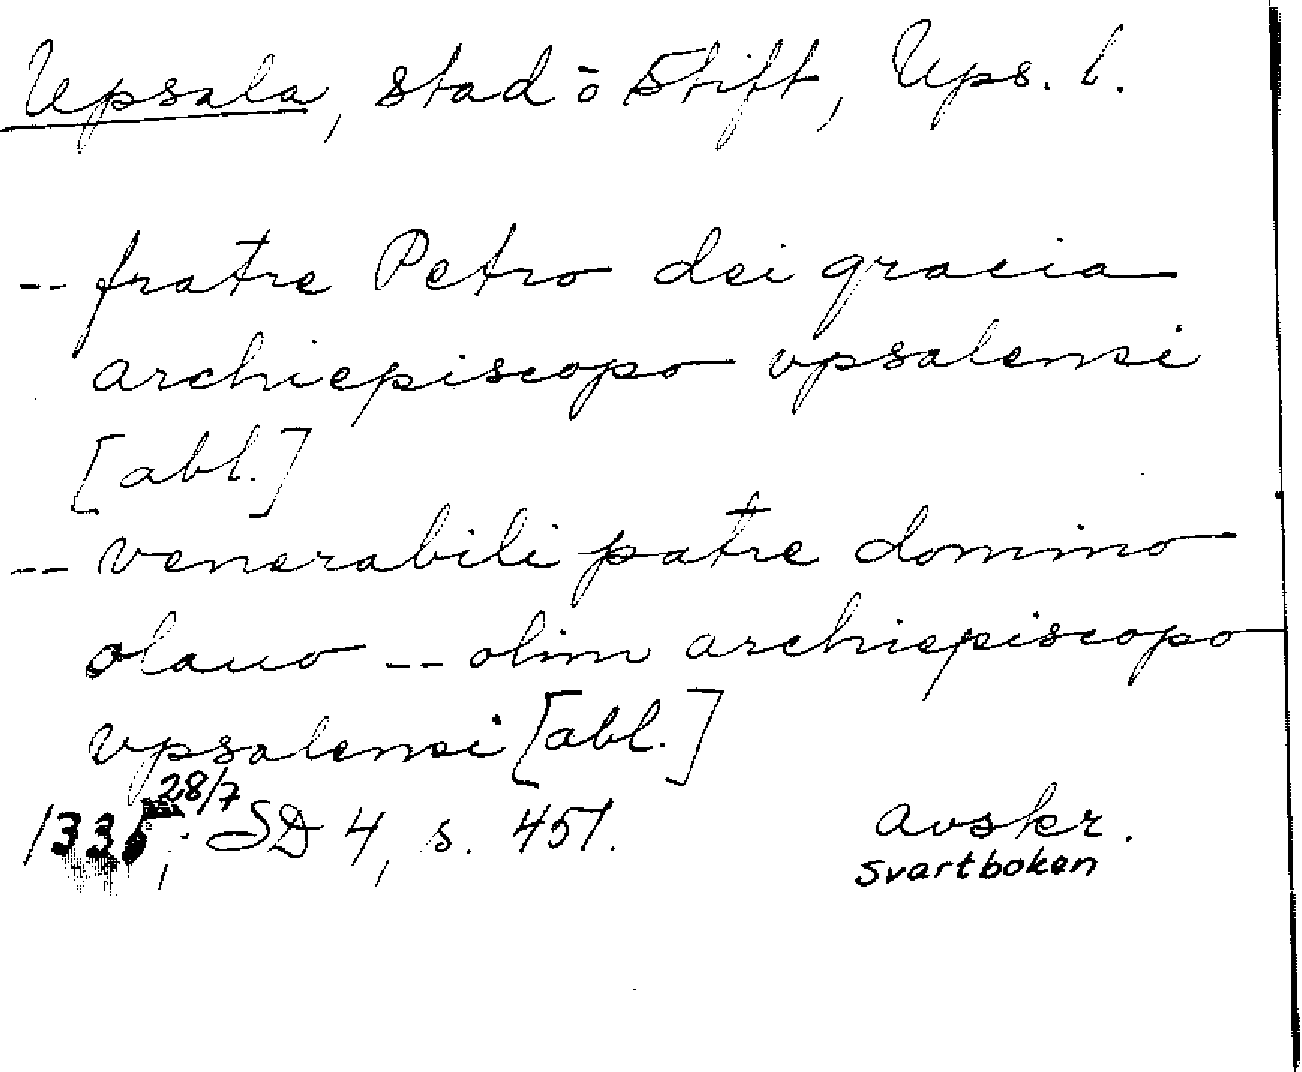 Upsala, stad o Stift, Ups. l.
-- fratre Petro dei gracia
archiepiscopo vpsalensi
[abl.]
-- venerabili patre domino
olauo -- olim archiepiscopo
vpsalensi [abl.]
28/7
SD 4, s. 451. avskr.
svartboken